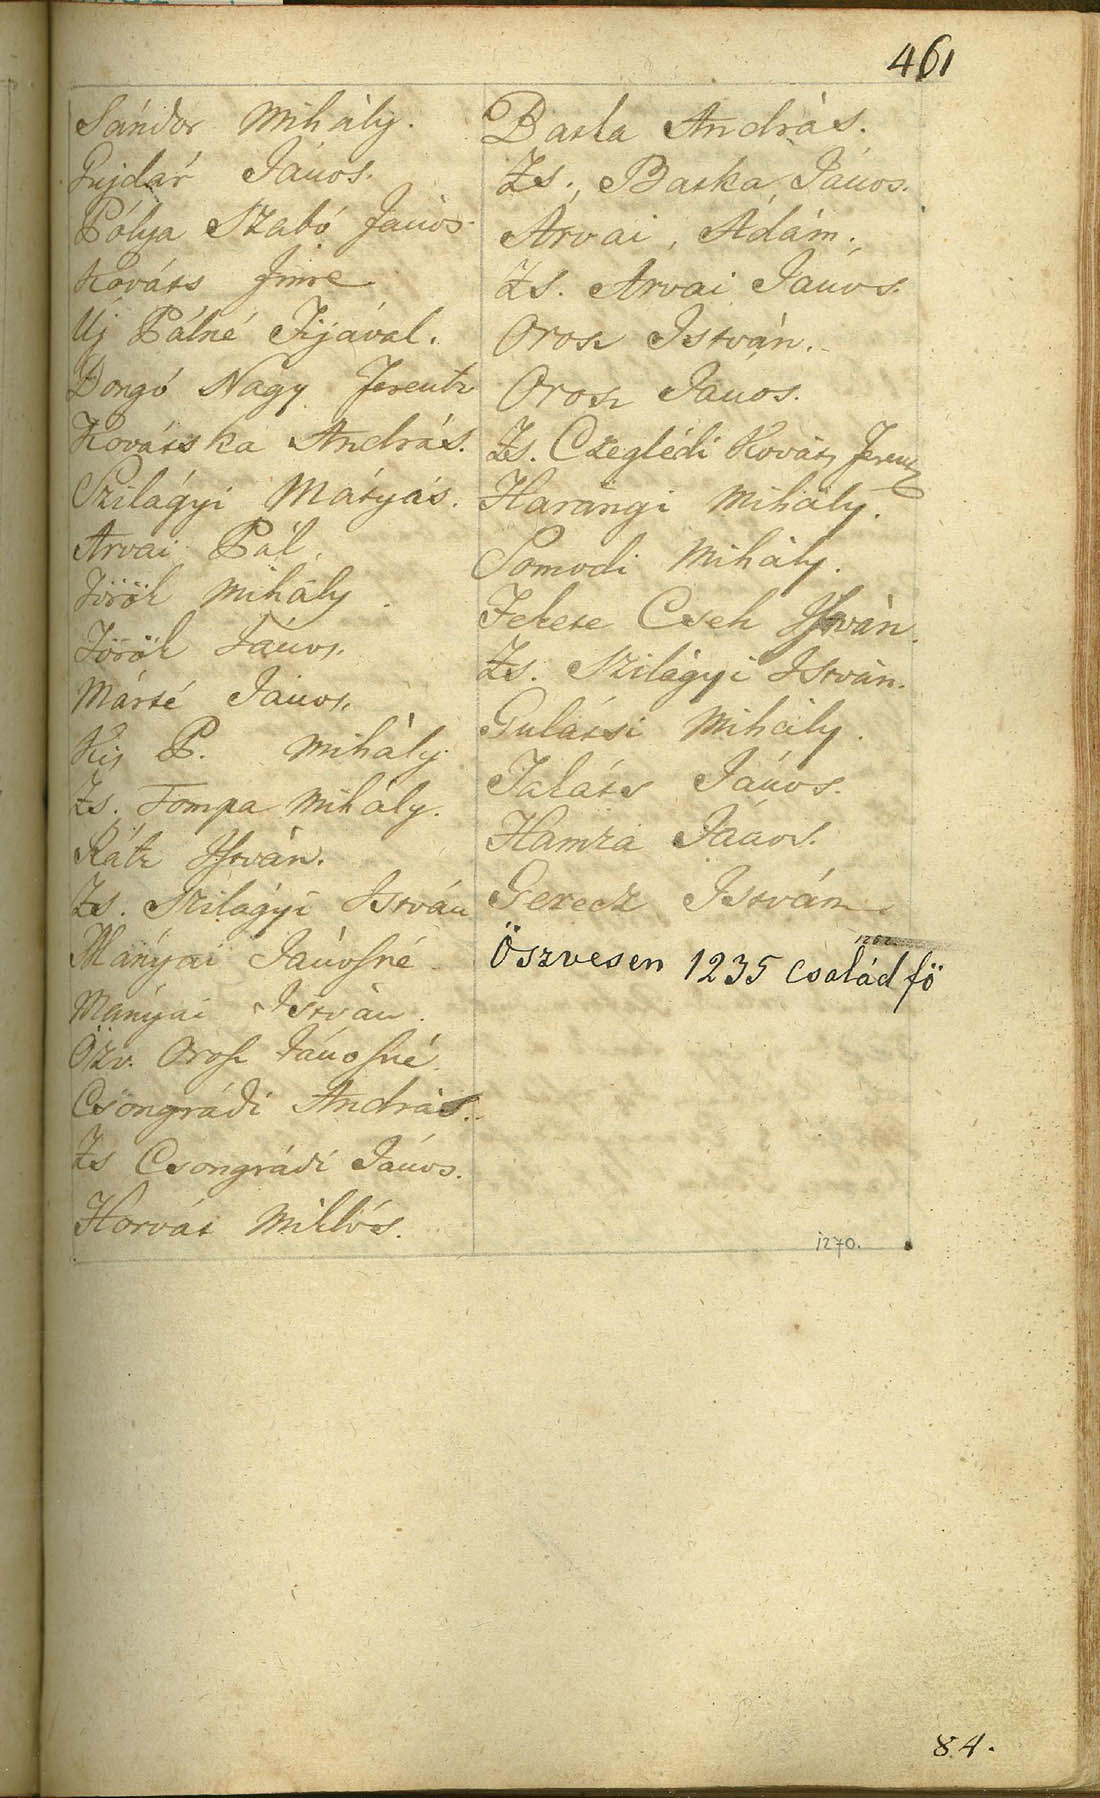 461
Sándor Mihály.
János.
Pólya Szabó János
Kováts Imre
Uj Pálné Fijával.
Dongó Nagy Ferentz
Kovátska András.
Szilágyi Mátyás.
Arvai Pál.
Török Mihály.
Török János.
Márté János.
Kis P. Mihály
Zs. Tompa Mihály.
Rátz István.
Zs. Szilágyi István
Mányai Jánosné
Mányai István.
Özv. Orosz Jánosné.
Csongrádi András.
Zs Csongrádi János.
Horvát Miklós.
Barta András.
Zs. Barka János.
Árvai, Ádám.
Zs. Arvai János.
Orosz István.
Orosz János.
Zs. Czeglédi Kováts Ferentz
Harangi Mihály.
Somodi Mihály.
Fekete Cseh István.
Zs. Szilágyi István.
Gulátsi Mihály.
Takáts János.
Hamza János.
Gerecz István.
1262.
Öszvesen 1235 család fö
1270.
84.